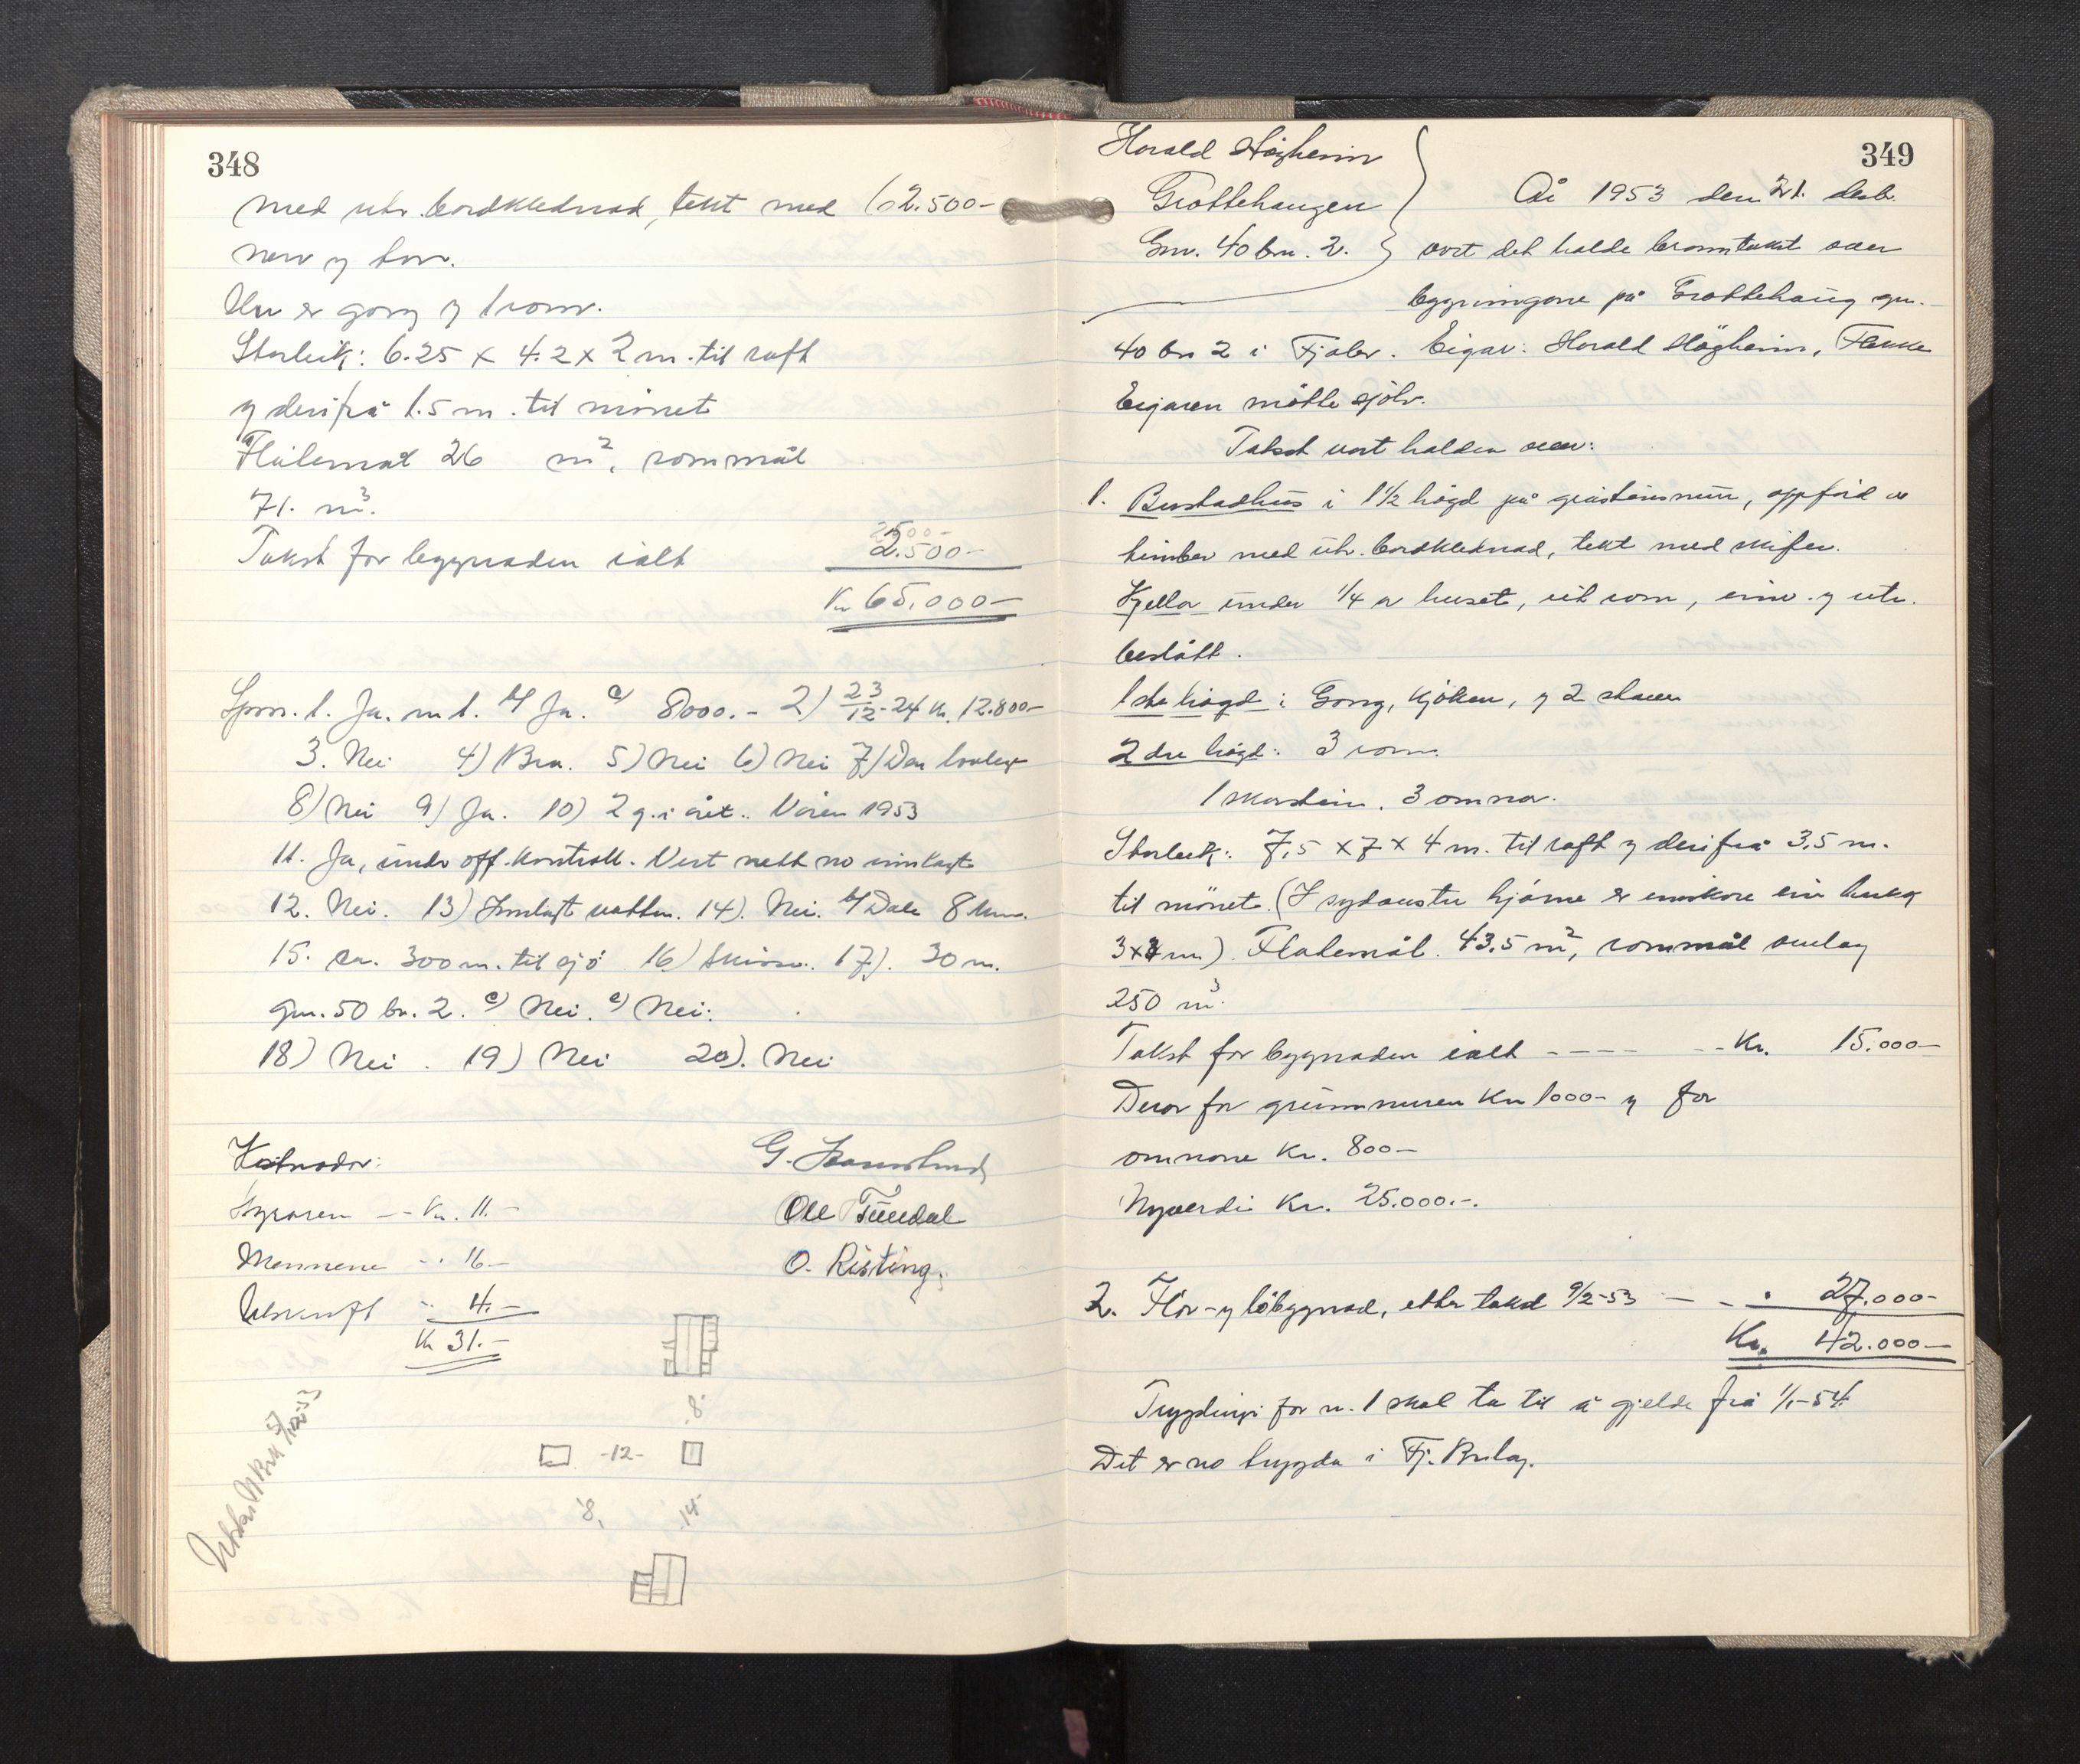 348
med utv. bordklednad, tekt med 62.500-
nerv og torv.
Un er gong og 1 rom.
Storleik: 6.25 x 4.2 x 2 m. til raft
og derifrå 1.5 m. til mønet
Flatemål 26 m², rommål
71. m³.
Takst for byggnaden ialt 2.500-
Kr 65.000-
Spm. 1. Ja. nr 1. b) Ja. c) 8000.- 2) 23/12-24 kr. 12.800-
3. Nei 4) Bra. 5) Nei 6) Nei 7) Den
8) Nei 9) Ja. 10) 2 g. i året. Våren 1953
11. Ja, under off. kontroll. Vert nett no innlagt
12. Nei. 13) Innlagt vatten. 14). Nei. b) Dale 8 km.
15. ca. 300 m. til sjø 16) Skisse. 17). 30 m.
gnr. 50 br. 2. c) Nei. e) Nei.
18) Nei. 19) Nei 20). Nei
Kostnader:
Styraren -- Kr. 11.-
Mennene -- 16.-
Utskrift -- 4.-
Kr 31.-
G.
Ole Tueedal
O. Risting.
8
-12-
8, 14-
349
Harald Høgheim
Grøttehaugen
Gnr. 40 bnr. 2.
År 1953 den 21. desbr.
vart det halde branntakst over
bygningane på Grøttehaug gnr.
40 bnr 2 i Fjaler. Eigar: Harald Høgheim, Flekke
Eigaren møtte sjølv.
Takst vart halden over:
1. Bustadhus i 1 1/2 høgd på gråsteinsmur, oppførd av
timber med utv. bordklednad, tekt med skifer.
Kjellar under 1/4 av huset, eit rom, innv. og utv.
beslått.
1ste høgd: Gong, kjøken, og 2 stover
2dre høgd: 3 rom.
1 skorstein. 3 omnar.
Storleik: 7,5 x 7 x 4 m. til raft og derifrå 3,5 m.
til mønet. (I sydaustre hjørne er innskore ein
3x3 m). Flatemål. 43.5 m², rommål omlag
250 m³.
Takst for byggnaden ialt ---- -- Kr. 15.000-
Derav for grunnmuren Kr 1000- og for
omnane Kr. 800-
Nyverdi Kr. 25.000.-.
2. Flor- og løbyggnad, etter takst 9/2-53 -- 27.000-
Kr. 42.000-
Trygdinga for nr. 1 skal ta til å gjelde frå 1/1-54
Det er no trygda i Fj. Brlag.